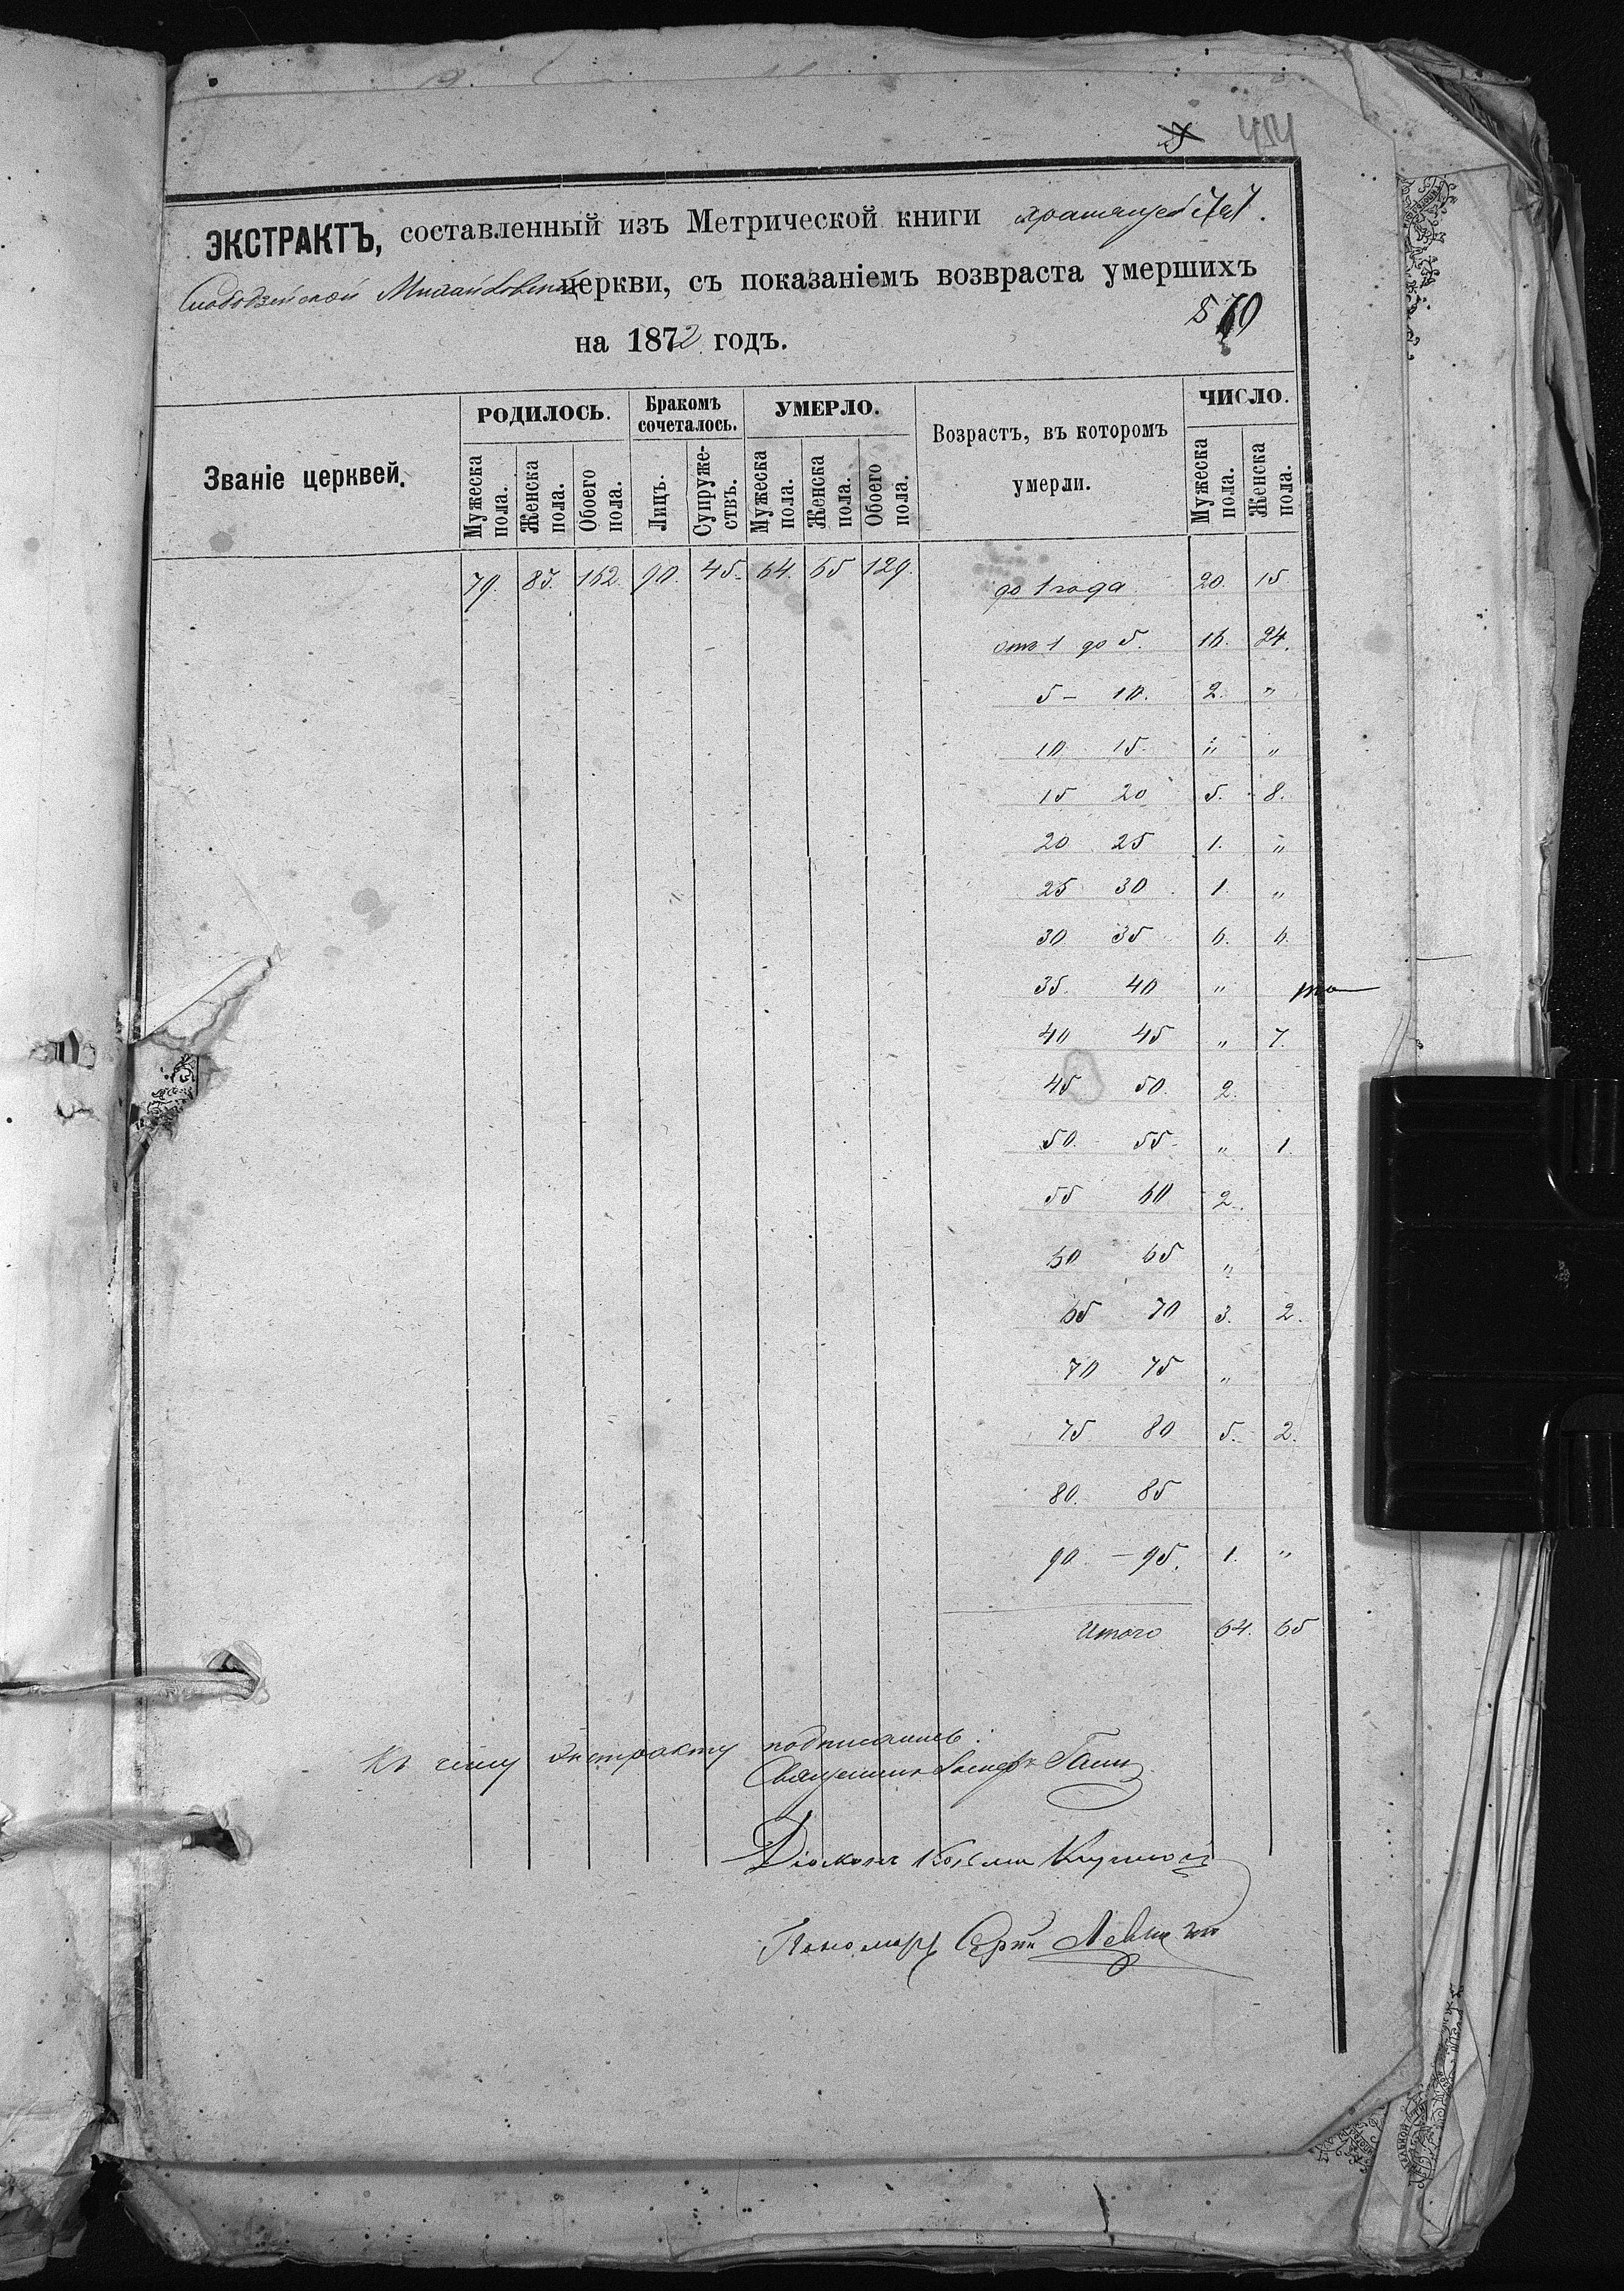 454
ЭКСТРАКТЪ, составленный изъ Метрической книги
Слободзейской Михайловской церкви, съ показаніемъ возвраста умершихъ
на 1872 годъ.
Званіе церквей.
РОДИЛОСЬ.
Бракомъ сочеталось.
УМЕРЛО.
Возрастъ, въ которомъ умерли.
ЧИСЛО.
Мужеска пола.
Женска пола.
Обоего пола.
Лицъ.
Супружествъ.
Мужеска пола.
Женска пола.
Обоего пола.
Мужеска пола.
Женска пола.
79. 83. 162. 90. 45. 64. 65 129. до 1 года 20. 15
отъ 1 до 5. 16. 24.
5 – 10. 2. "
10 15. " "
15 20 5. 8.
20 25 1. "
25 30 1. "
30 35 6. 6.
35. 40 "
40 45 " 7.
45 50. 2.
50. 55 " 1.
55 60 2.
60 65 "
65 70 3. 2.
70 75 "
75 80 5. 2.
80. 85
90. – 95. 1. "
Итого 64. 65
Къ сему экстракту подписались:
Священникъ
Діаконъ
Пономарь